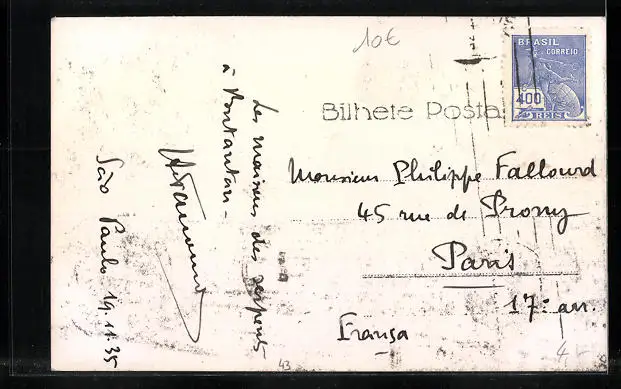 10€
BRASIL
CORREIO
400
REIS
Bilhete Posta
Les maisons des serpents
à Boutantan -
São Paulo 19.11.35
Monsieur Philippe Fallourd
45 rue de Prony
Paris
17e arr.
França
43
4-